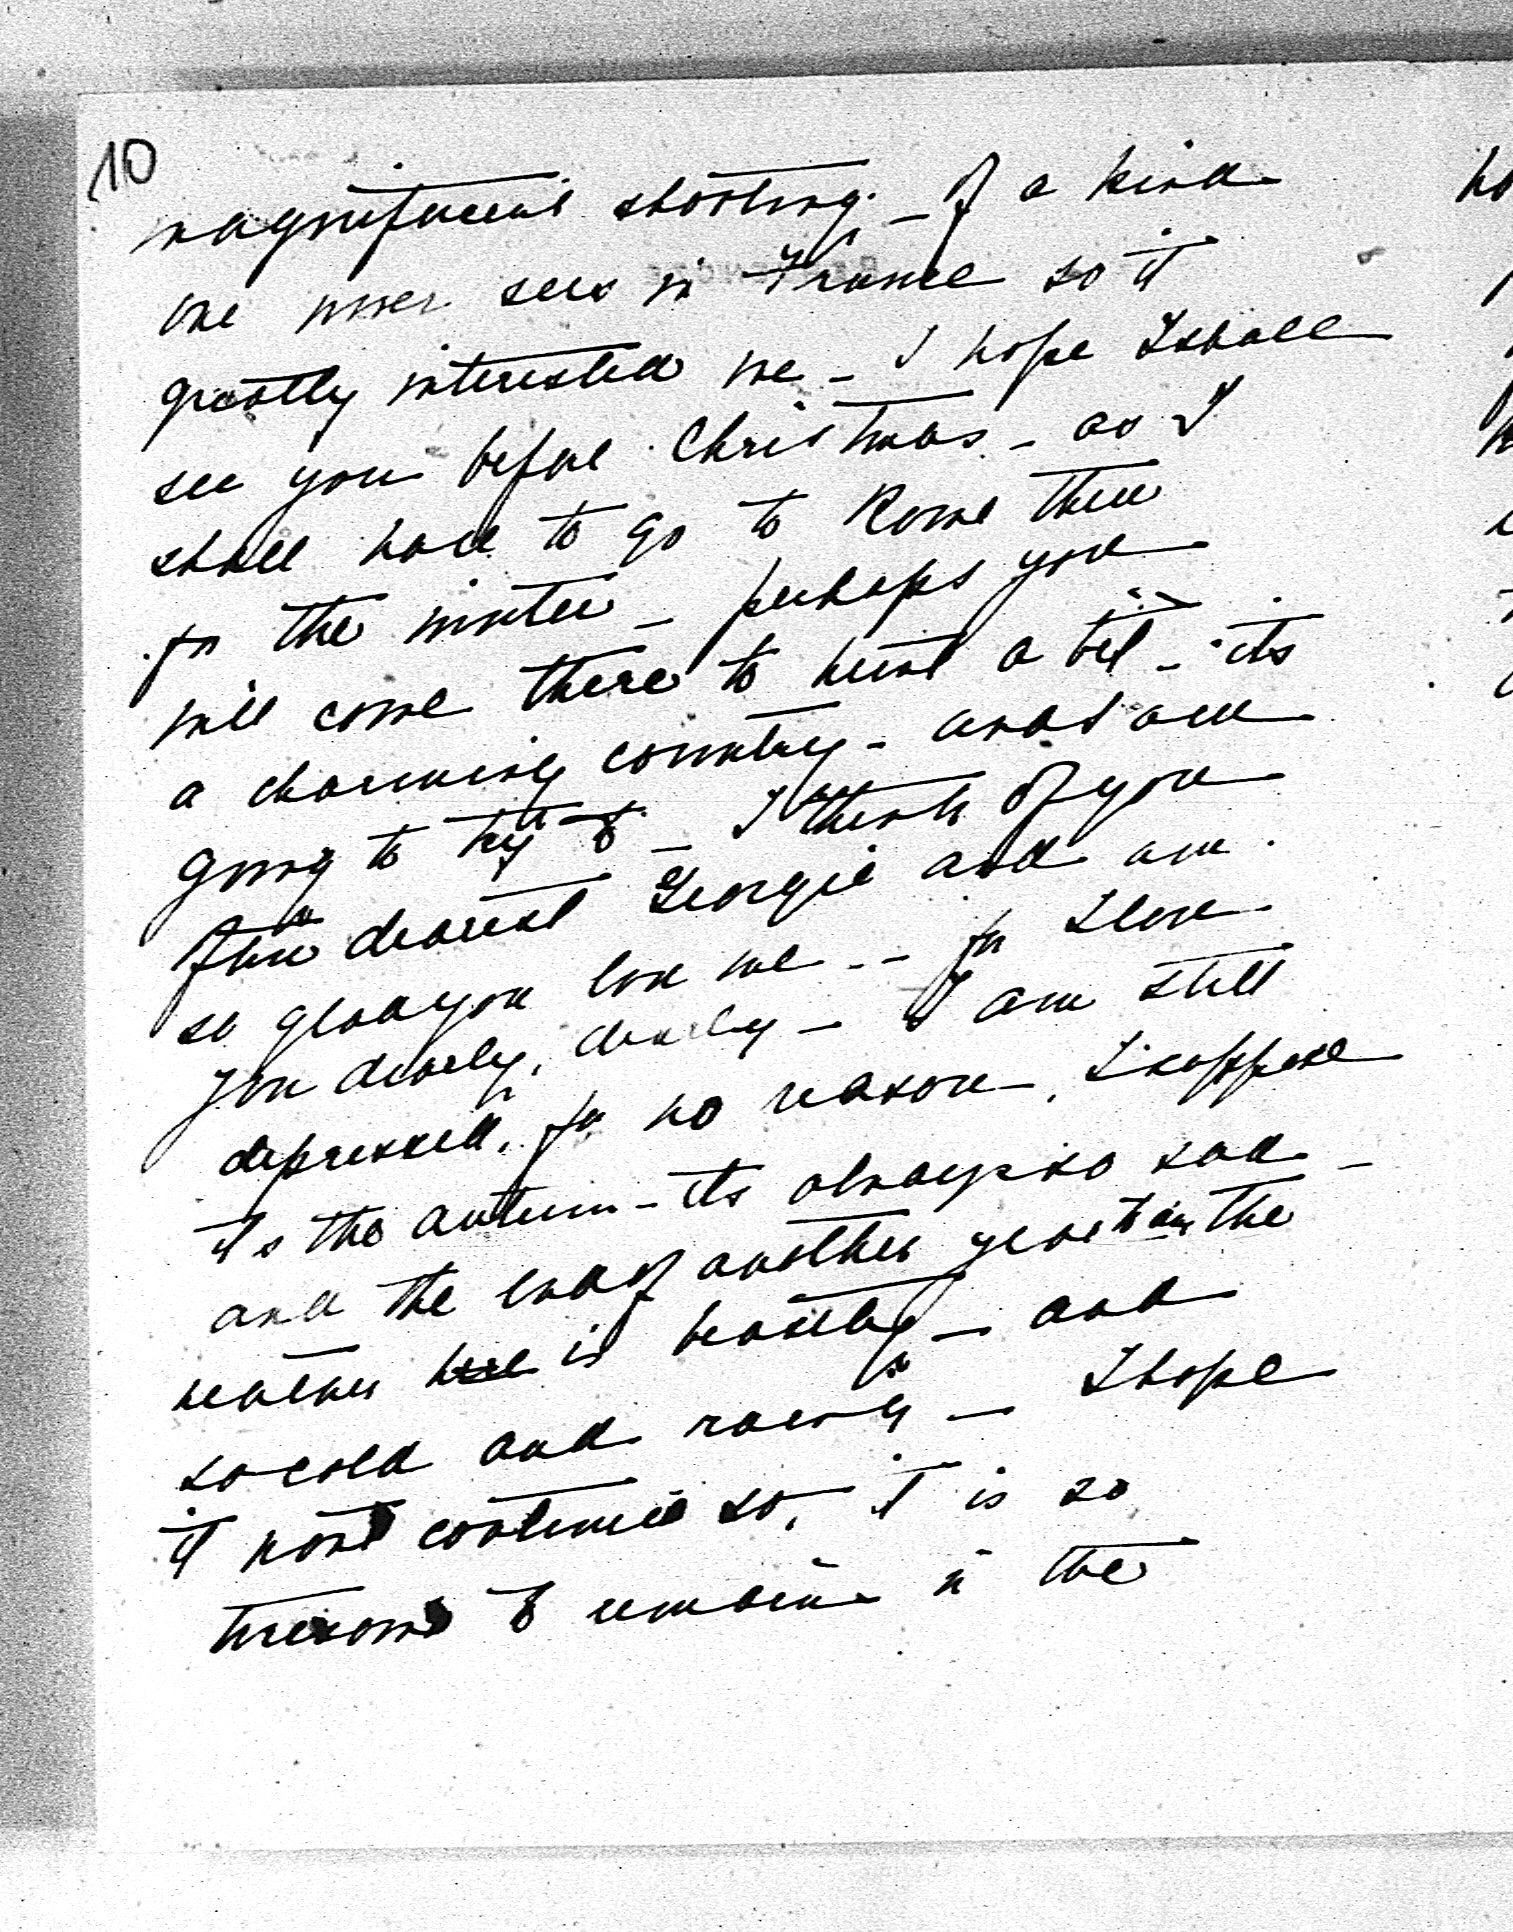 10
magnificent shooting - of a kind
one never sees in France so it
greatly interested me - I hope I shall
see you before Christmas - as I
shall have to go to Rome then
for the winter - perhaps you
will come there to hunt a bit - its
a charming country - and I am
going to try to - I think of you
often dearest Georgie and am
so glad you love me -- for I love
you dearly, dearly - I am still
depressed, for no reason, I suppose
its the autum - its always so sad -
and the end of another year the
weather here is beastly - and
so cold and rainy - I hope
it wont continue so, it is so
tiresome to remain in the